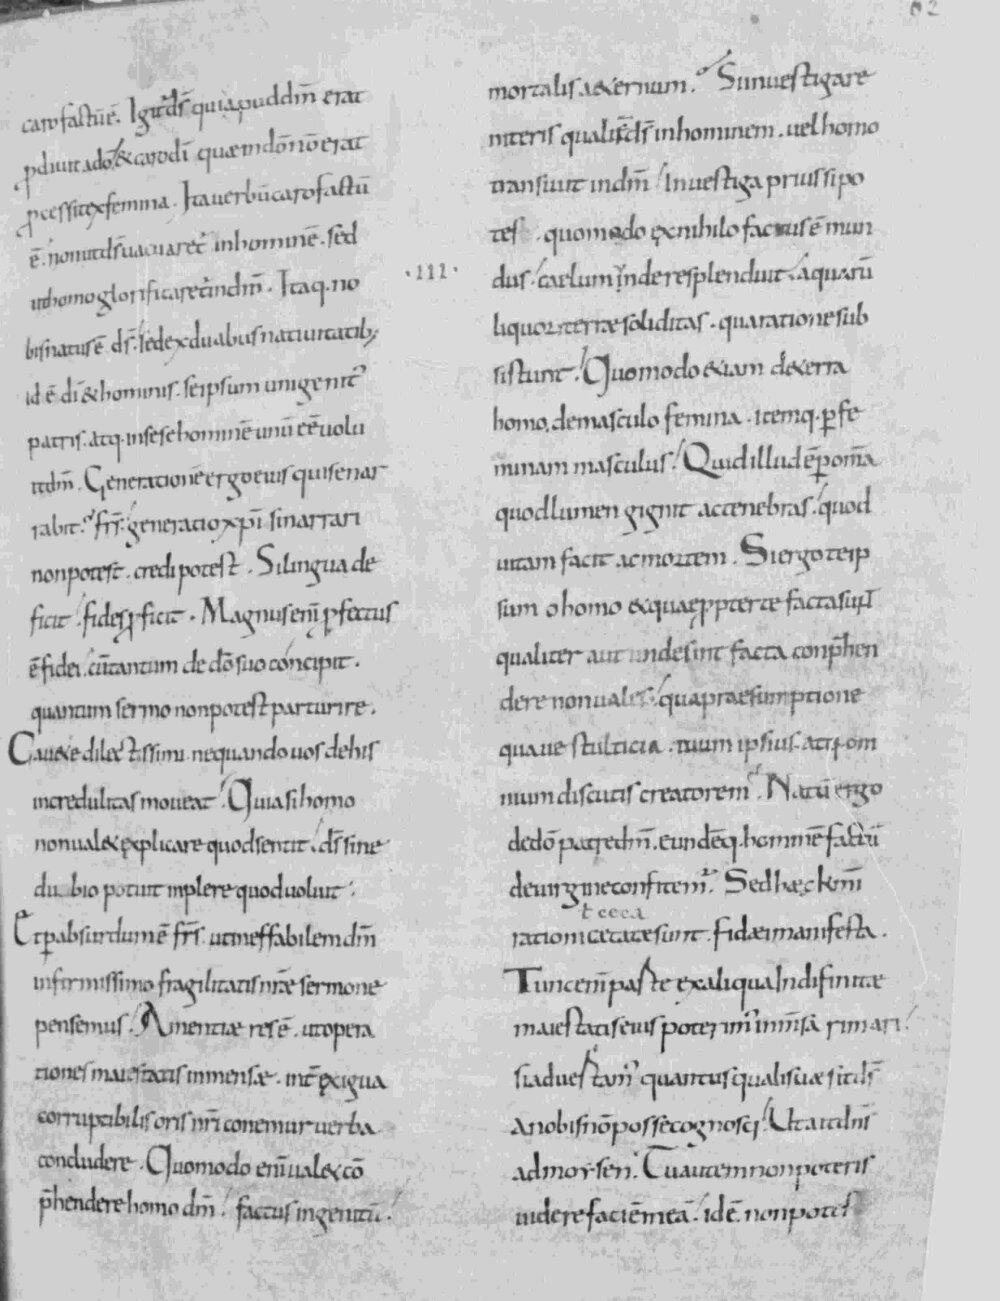 62
caro factū ē. Igit᷑ d̄s quia puddm̄ erat
ꝓdiuit ad ō & caro d̄i quæ in dō nō erat
ꝓcessit ex femina. Ita uerbū caro factū
ē. non ut d̄s uacuaret᷑ in homine. sed
ut homo glorificaret᷑ in dm̄. Itaq. no
bis natus ē d̄s. sed ex duabus natiuitatib;
id ē d̄i & hominis. se ipsum unigenit᷒
patris. atq. in se se hominē unū eē uolu
it dm̄. Generationē ergo eius quis enar
rabit. fr̄s. generatio xp̄i si narrari
non potest. credi potest. Si lingua de
ficit. fides ꝓficit. Magnus eni̅ ꝓfectus
ē fidei. cū tantum de dō suo concipit.
quantum sermo non potest parturire.
Cauete dilectissimi. ne quando uos de his
incredulitas moueat. Quia si homo
non ualet explicare quod sentit. d̄s sine
dubio potuit inplere quod uoluit.
Et ꝑabsurdum ē fr̄s. ut ineffabilem dm̄
infirmissimo fragilitatis nr̄æ sermone
pensemus. Amentiæ res ē. ut opera
tiones maiestatis inmensæ. int̄ exigua
corruptibilis oris nr̄i conemur uerba
concludere. Quomodo eni̅ ualet cō
p̄hendere homo dm̄. factus ingenitū.
mortalis aeternum. Si inuestigare
niteris qualit̄ d̄s in hominem. uel homo
transiuit in dm̄. Inuestiga prius si po
tes. quomodo ex nihilo factus ē mun
·III·
dus. caelum inde resplenduit. aquarū
liquor. terræ soliditas. qua ratione sub
sistunt. Quomodo etiam de terra
homo. de masculo femina. itemq. ꝑ fe
minam masculus. Quid illud ē ꝑ om̄a
quod lumen gignit ac tenebras. quod
uitam facit ac mortem. Si ergo te ip
sum o homo et quae ꝓpter te facta sunt
qualiter aut unde sint facta conp̄hen
dere non uales. qua praesumptione
quaue stulticia. tuum ipsius. atq. om
nium discutis creatorem. Natū ergo
de dō patre dm̄. eundēq. hominē factū
de uirgine confitem᷑. Sed hæc km̄i
t ceea
rationi cetatæ sunt. fidæi manifesta.
Tunc eni̅ paste ex aliqua Indifinitæ
maiestatis eius poterim᷒ inmēsā rimari.
si aduestam᷒ quantus qualisuæ sit d̄s
A nobis nō posse cognosci. Ut ait dn̄s
ad moysen. Tu autem non poteris
uidere faciē meā. id ē. non potes